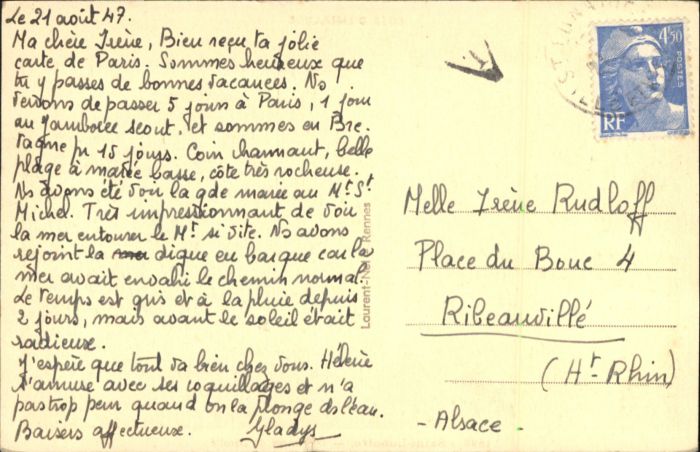 Le 21 août 47.
Ma chère Irène, Bien reçu ta jolie
carte de Paris. Sommes heureux que
tu y passes de bonnes vacances. Ns
venons de passer 5 jours à Paris, 1 jour
au jamboree scout, et sommes en Bre-
tagne pr 15 jours. Coin charmant, belle
plage à marée basse, côte très rocheuse.
Ns avons été voir la gde marée au Mt St
Michel. Très impressionnant de voir
la mer entourer le Mt si vite. Ns avons
rejoint la mer digue en barque car la
mer avait envahi le chemin normal.
Le temps est gris et à la pluie depuis
2 jours, mais avant le soleil était
radieuse.
J'espère que tout va bien chez vous. Hélène
s'amuse avec ses coquillages et n'a
pas trop peur quand on la plonge ds l'eau.
Baisers affectueux. Gladys
Laurent-Nel Rennes
4f50
POSTES
RF
Melle Irène Rudloff
Place du Bouc 4
Ribeauvillé
(Ht Rhin)
- Alsace -